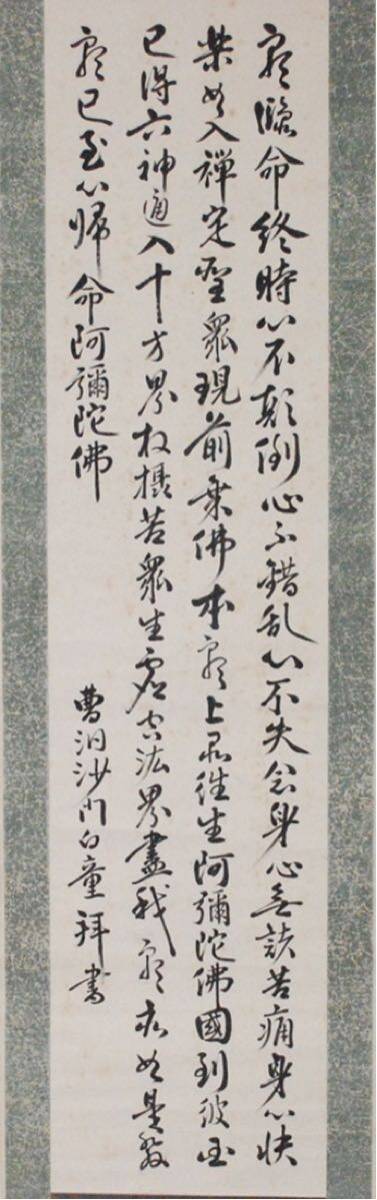 願臨命終時心不顛倒心不錯乱心不失念身心無諸苦痛身心快
楽如入禅定聖眾現前乗佛本願上品往生阿彌陀佛國到彼国
已得六神通入十方界救摂苦眾生虚空法界盡我願亦如是發
願已至心帰命阿彌陀佛
曹洞沙門白童拜書